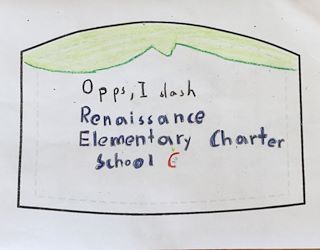 Opps, I slash
Renaissance
Elementary Charter
School C